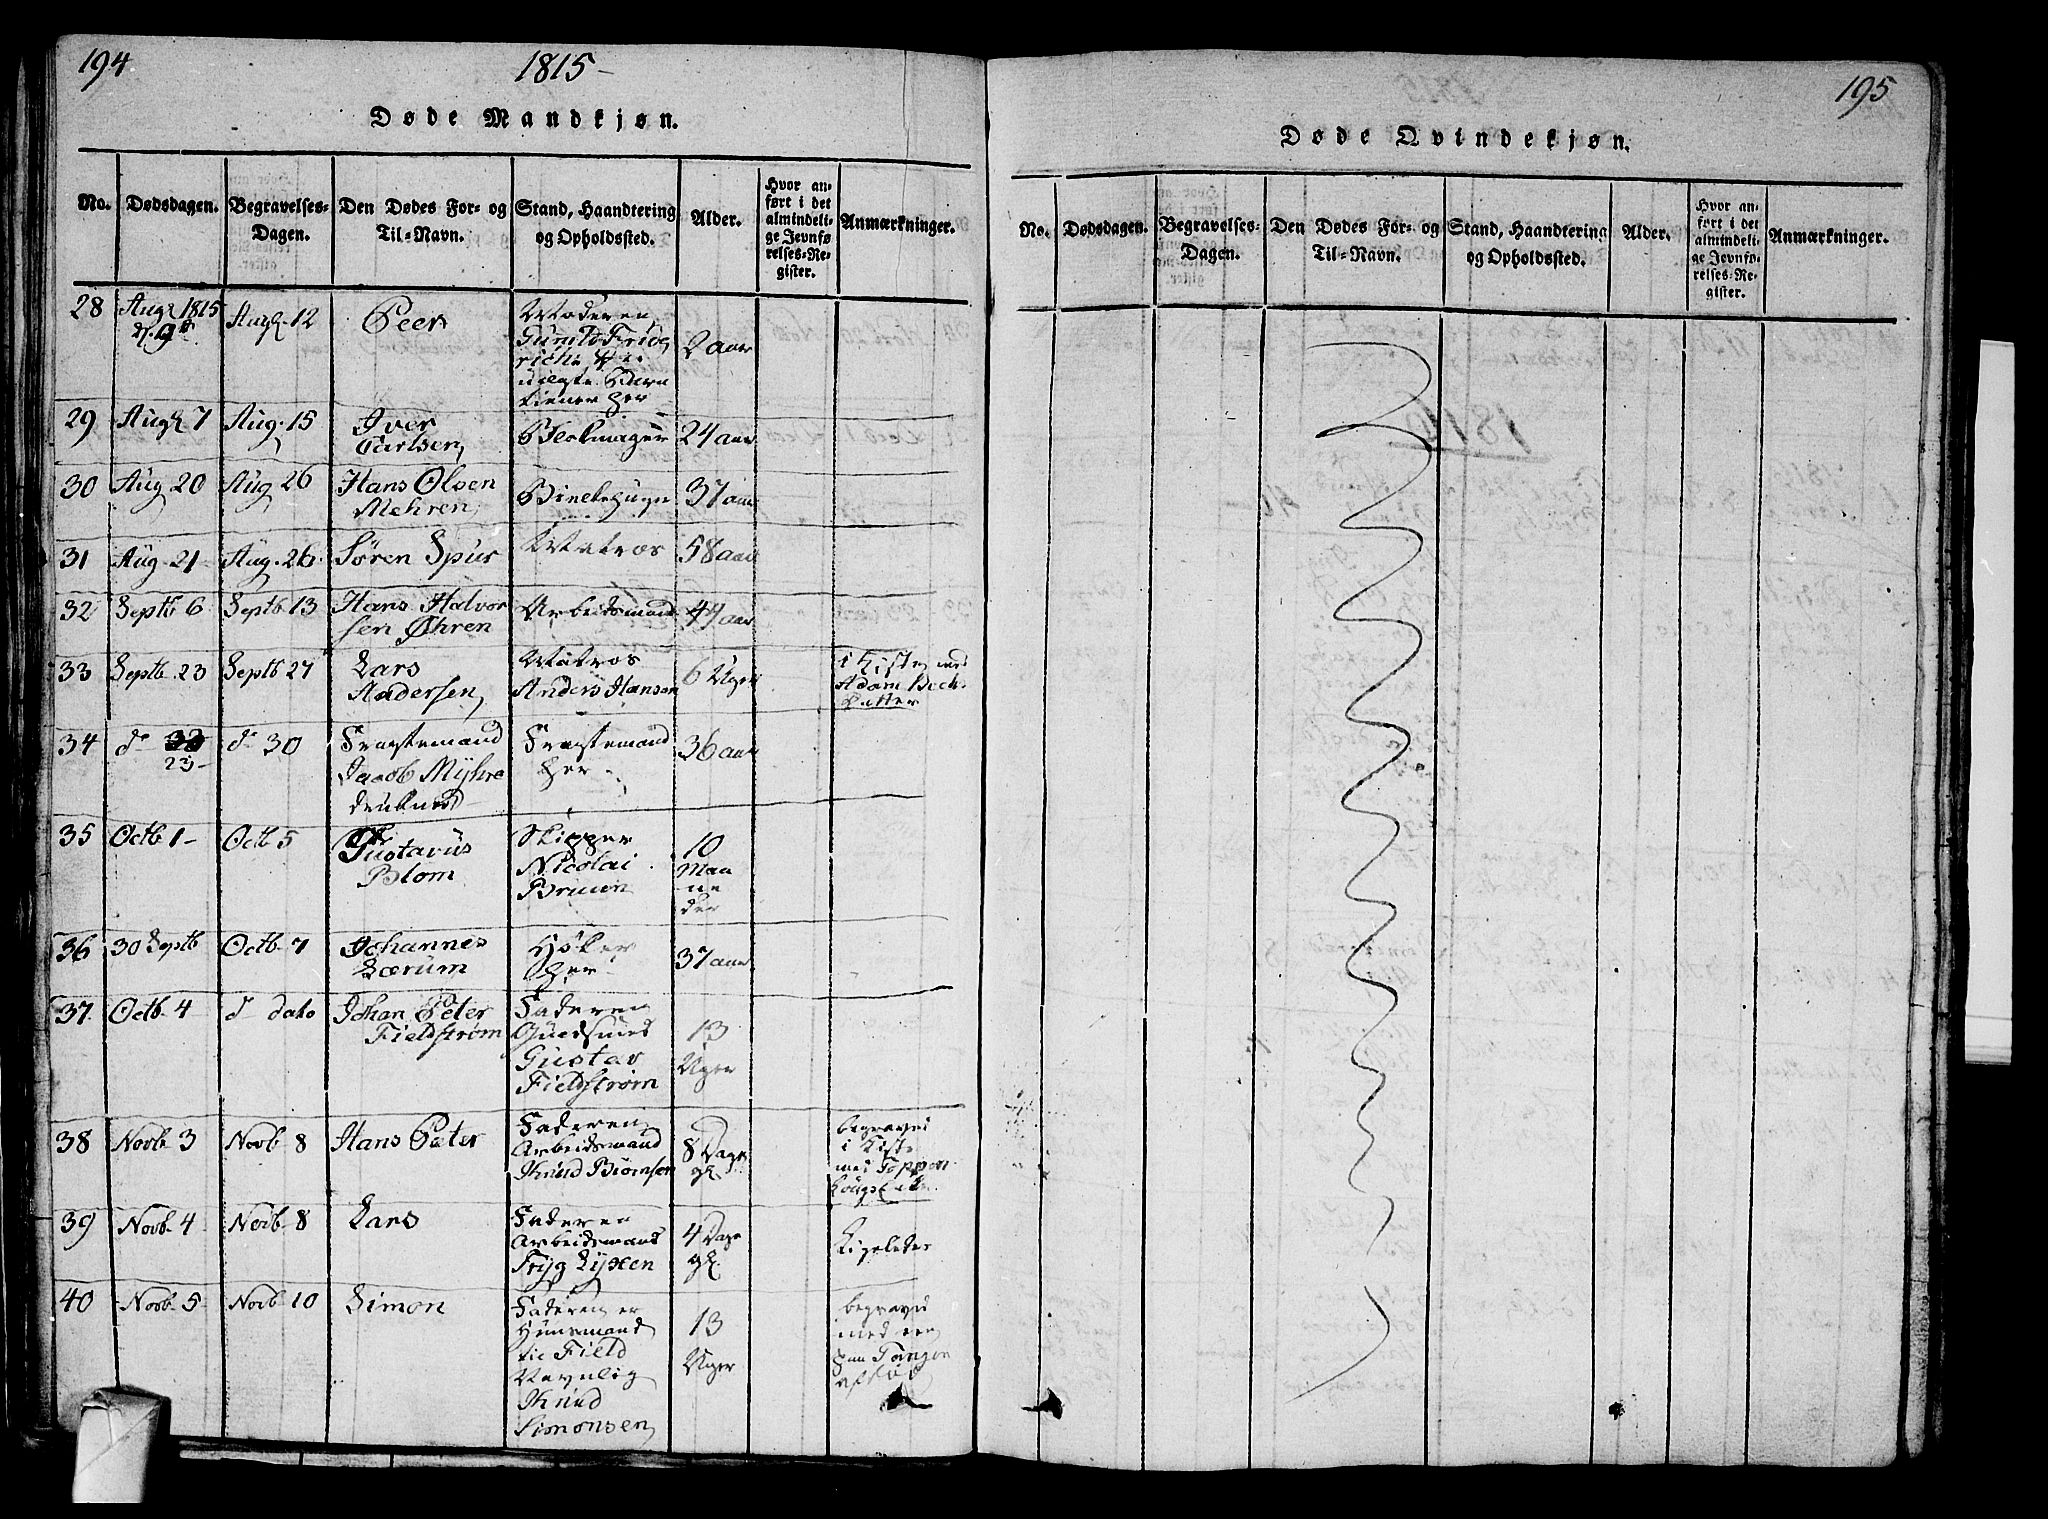 194
1815
Døde Mandkjøn.
No. Dødsdagen. Begravelses-Dagen. Den Dødes For- og Til-Navn. Stand, Haandtering og Opholdssted. Alder. Hvor anført i det almindelige Jevnførelses-Register. Anmærkninger.
28 Augt 1815 d. 9de Augt 12 Peer Moderen 2 aar
29 Augt 7 Aug. 15 Iver Carlsen Blokmager 24 aar
30 Aug 20 Aug 26 Hans Olsen Mehren 37 aar
31 Aug 21 Aug. 26 Søren Spur Matros 58 aar
32 Septb 6 Septb 13 Hans Halvorsen Øhren Arbeidsmand 44 aar
33 Septb. 23 Septb 27 Lars Andersen Matros Anders Hansen 6 Uger i Kiste med Adam Beck Datter
34 d° 23 d° 30 Fragtemand Jacob Myhre Fragtemand her 36 aar
35 Octb 1 Octb 5 Gustavus Blom Skipper Nicolai Bruun 10 Maaneder
36 30 Septb Octb 7 Johannes Lærum Høker her 37 aar
37 Octb. 4 d° dato Johan Peter Fieldstrøm Faderen Guldsmed Gustav Fieldstrøm 13 Uger
38 Novb 3 Novb 8 Hans Peter Faderen Arbeidsmand Knud Biørnsen 8 Dage gl. begravet i Kiste med
39 Novb. 4 Novb 8 Lars Faderen Arbeidsmand Tryg 4 Dage gl.
40 Novb. 5 Novb 10 Simon Faderen er Huusmand til Field Navnlig Knud Simonsen 13 Uger begravet med een
195
Døde Qvindekjøn.
No. Dødsdagen. Begravelses-Dagen. Den Dødes For- og Til-Navn. Stand, Haandtering og Opholdssted. Alder. Hvor anført i det almindelige Jevnførelses-Register. Anmærkninger.